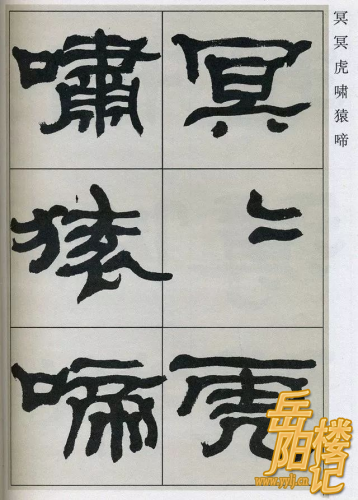 冥冥虎啸猿啼
冥〻虎
嘯猿啼
岳阳楼记
www.yylj.cn